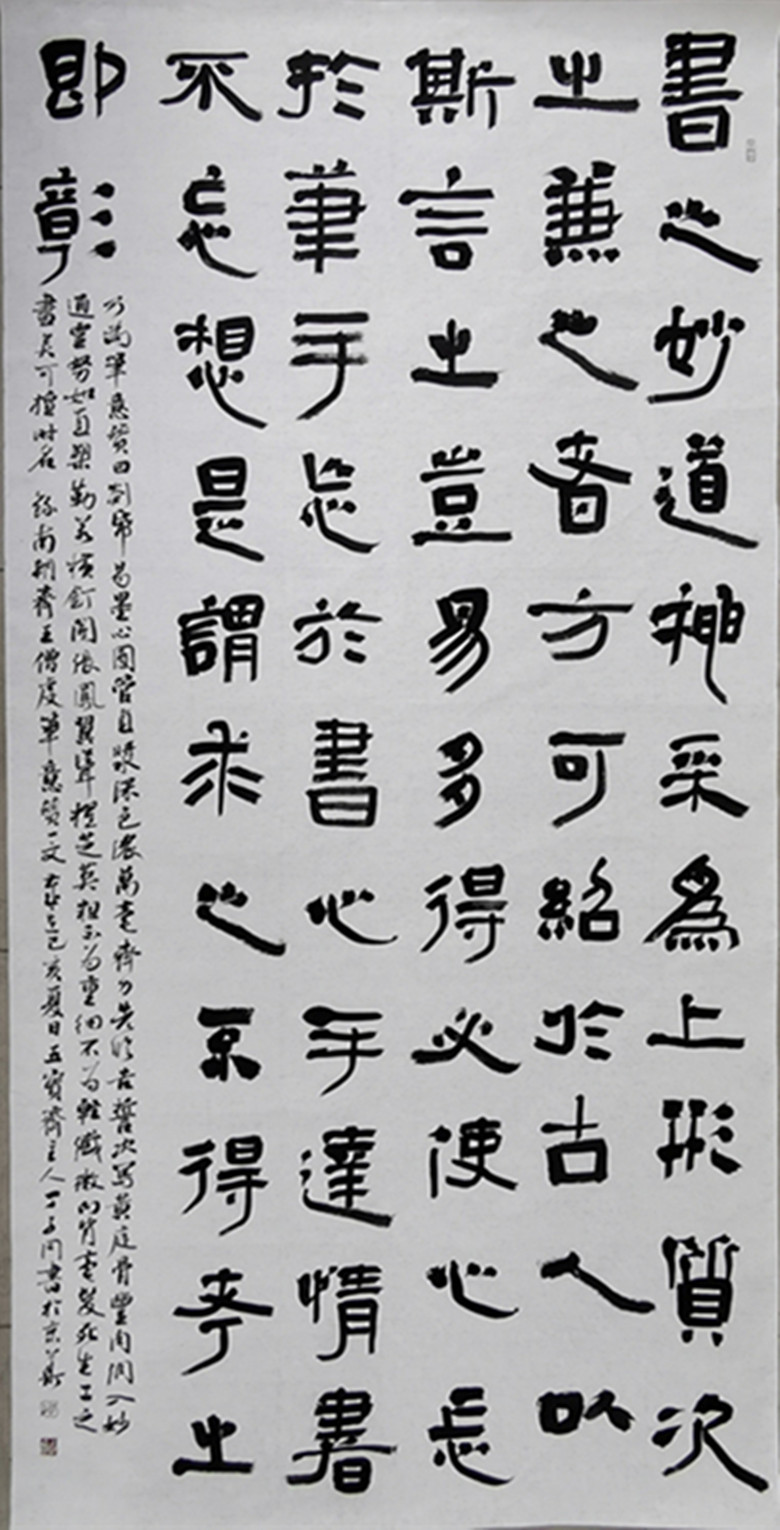 書之妙道神采為上形質次
之兼之者方可紹於古人以
斯言之豈易多得必使心忘
於筆手忘於書心手達情書
不忘想是謂求之不得考之
即彰
乃為筆意贊曰剡紙易墨心圓管直漿深色濃萬毫齊力先臨告誓次寫黃庭骨豐肉潤入妙
通靈努如直槊勒若橫釘開張鳳翼聳擢芝英粗不為重細不為輕纖微向背毫髮死生工之
盡矣可擅時名 錄南朝齊王僧虔筆意贊一文 己亥夏日五寶齋主人丁書於京華